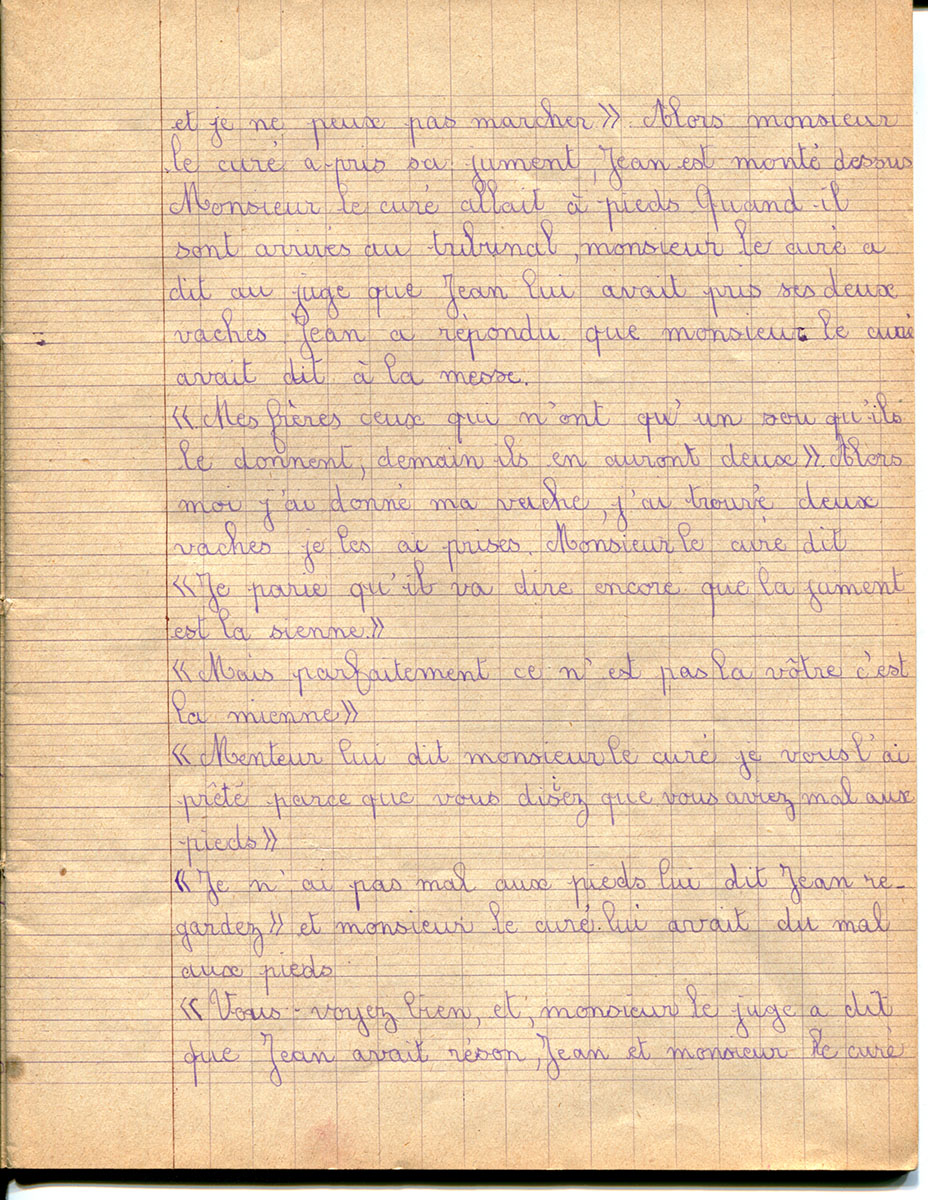 et je ne peux pas marcher » Alors monsieur
le curé a pris sa jument, Jean est monté dessus
Monsieur le curé allait à pieds Quand il
sont arrivés au tribunal, monsieur le curé a
dit au juge que Jean lui avait pris ses deux
vaches Jean a répondu que monsieur le curé
avait dit à la messe.
« Mes frères ceux qui n'ont qu'un sou qu'ils
le donnent, demain ils en auront deux » Alors
moi j'ai donné ma vache, j'ai trouvé deux
vaches je les ai prises. Monsieur le curé dit
« Je parie qu'il va dire encore que la jument
est la sienne »
« Mais parfaitement ce n'est pas la vôtre c'est
la mienne »
« Menteur lui dit monsieur le curé je vous l'ai
prêté parce que vous disiez que vous aviez mal aux
pieds »
« Je n'ai pas mal aux pieds lui dit Jean re-
gardez » et monsieur le curé lui avait du mal
aux pieds
« Vous-voyez bien, et, monsieur le juge a dit
que Jean avait réson, Jean et monsieur le curé